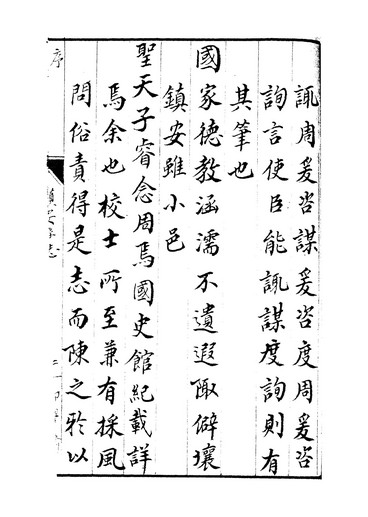 諏周爰咨謀爰咨度周爰咨
詢言使臣能諏謀度詢則有
其筆也
國家德教涵濡不遺遐陬僻壤
鎮安雖小邑
聖天子睿念周焉國史館紀載詳
焉余也校士所至兼有採風
問俗責得是志而陳之於以
序
鎮安
志